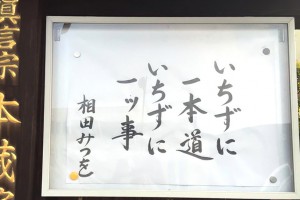 いちずに
一本道
いちずに
一ッ事
相田みつを
真宗